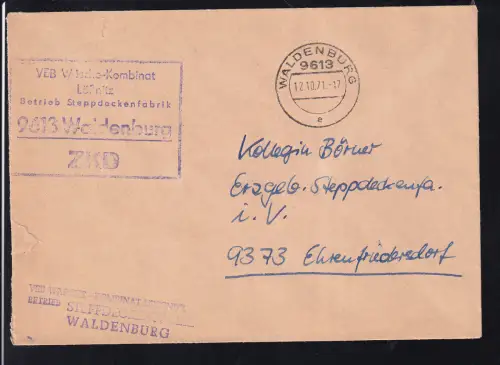 VEB Wäsche-Kombinat
Lößnitz
Betrieb Steppdeckenfabrik
9613 Waldenburg
ZKD
WALDENBURG
9613
12.10.71.-17
e
Kollegin Börner
Erzgeb. Steppdeckenfa.
i. V.
9373 Ehrenfriedersdorf
BETRIEB
WALDENBURG